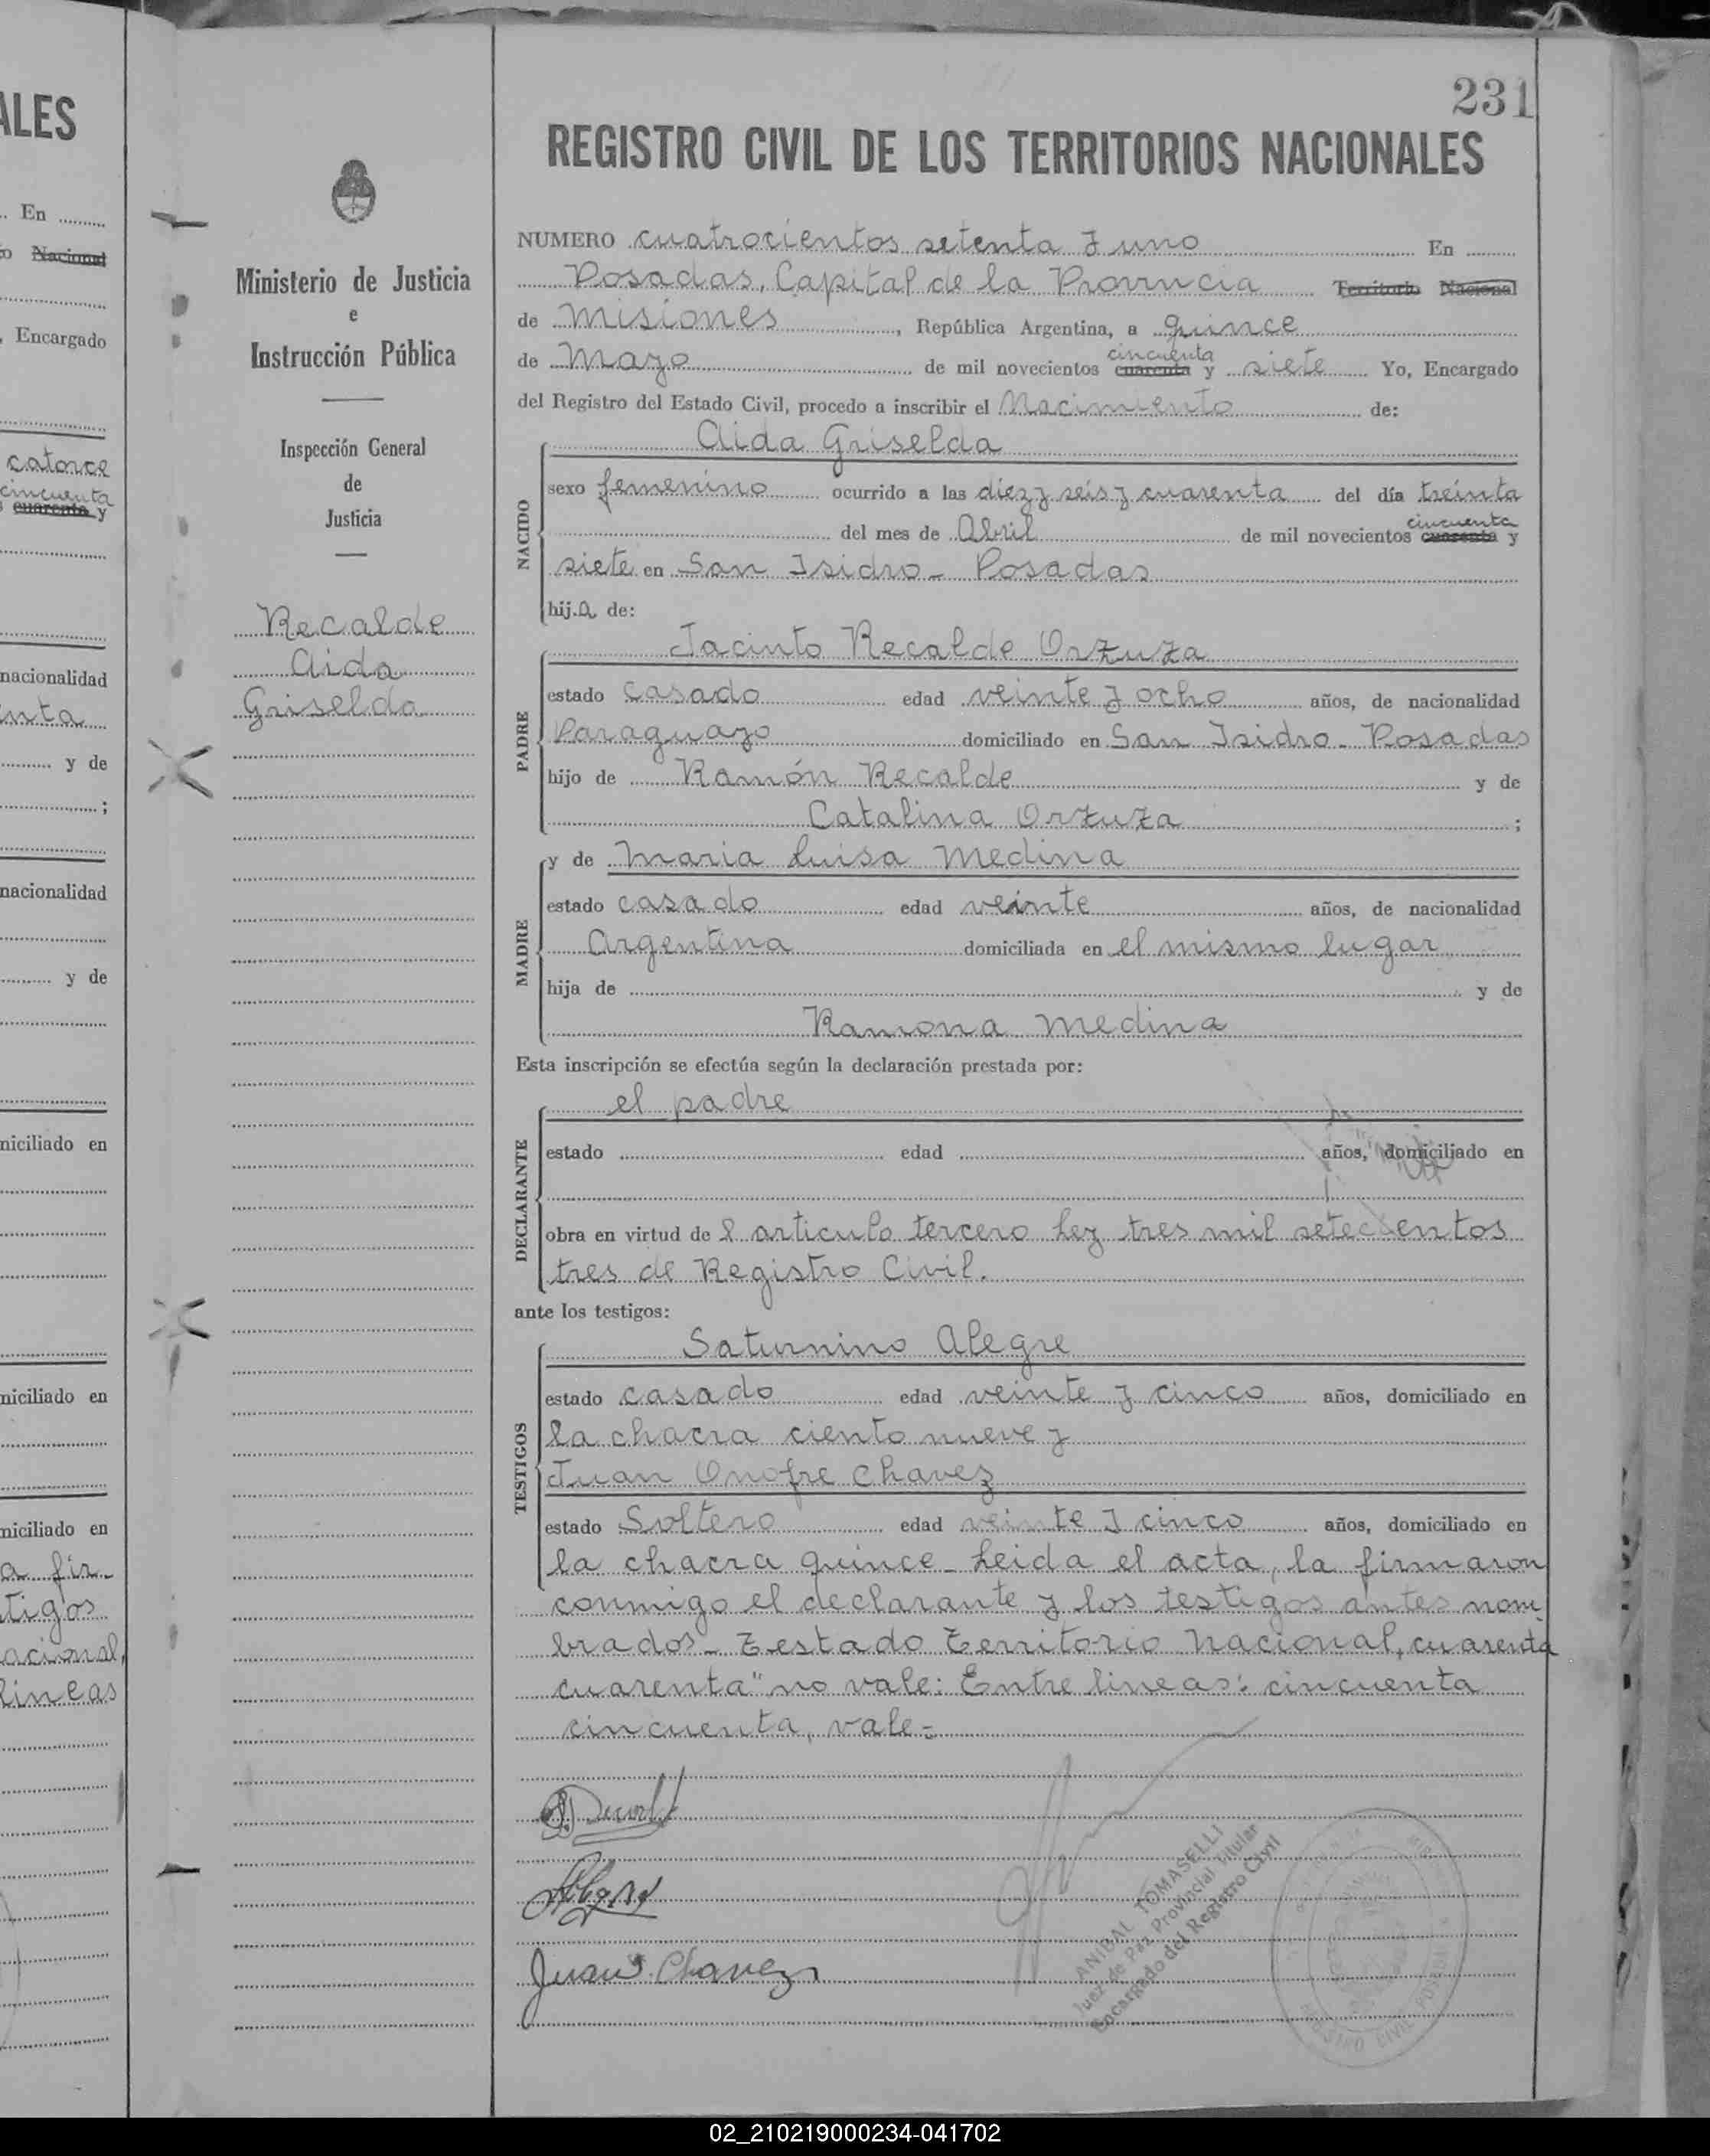 ALES
En
Nacional
Encargado
catorce
cincuenta
cuarenta y
nacionalidad
y de
;
nacionalidad
y de
niciliado en
niciliado en
niciliado en
a fir-
tigos
acional,
lineas
Ministerio de Justicia
e
Instrucción Pública
Inspección General
de
Justicia
Recalde
Aida
Griselda
231
REGISTRO CIVIL DE LOS TERRITORIOS NACIONALES
NUMERO cuatrocientos setenta y uno En
Posadas, Capital de la Provincia Territorio Nacional
de Misiones, República Argentina, a quince
de Mayo de mil novecientos cuarenta cincuenta y siete Yo, Encargado
del Registro del Estado Civil, procedo a inscribir el Nacimiento de:
NACIDO
Aida Griselda
sexo femenino ocurrido a las diez y seis y cuarenta del día treinta
del mes de Abril de mil novecientos cuarenta cincuenta y
siete en San Isidro - Posadas
hija de:
PADRE
Jacinto Recalde Orzuza
estado casado edad veinte y ocho años, de nacionalidad
Paraguayo domiciliado en San Isidro - Posadas
hijo de Ramón Recalde y de
Catalina Orzuza ;
MADRE
y de Maria Luisa Medina
estado casado edad veinte años, de nacionalidad
Argentina domiciliada en el mismo lugar
hija de y de
Ramona Medina
Esta inscripción se efectúa según la declaración prestada por:
DECLARANTE
el padre
estado edad años, domiciliado en
obra en virtud de l articulo tercero ley tres mil setecientos
tres de Registro Civil.
ante los testigos:
TESTIGOS
Saturnino Alegre
estado casado edad veinte y cinco años, domiciliado en
la chacra ciento nueve y
Juan Onofre Chavez
estado Soltero edad veinte y cinco años, domiciliado en
la chacra quince - Leida el acta, la firmaron
conmigo el declarante y los testigos antes nom-
brados - Testado Territorio Nacional, cuarenta
cuarenta" no vale: Entre lineas: cincuenta
cincuenta, vale -
Juan Chavez
ANIBAL TOMASELLI
Juez de Paz Provincial Titular
Encargado del Registro Civil
REGISTRO CIVIL POSADAS
02_210219000234-041702